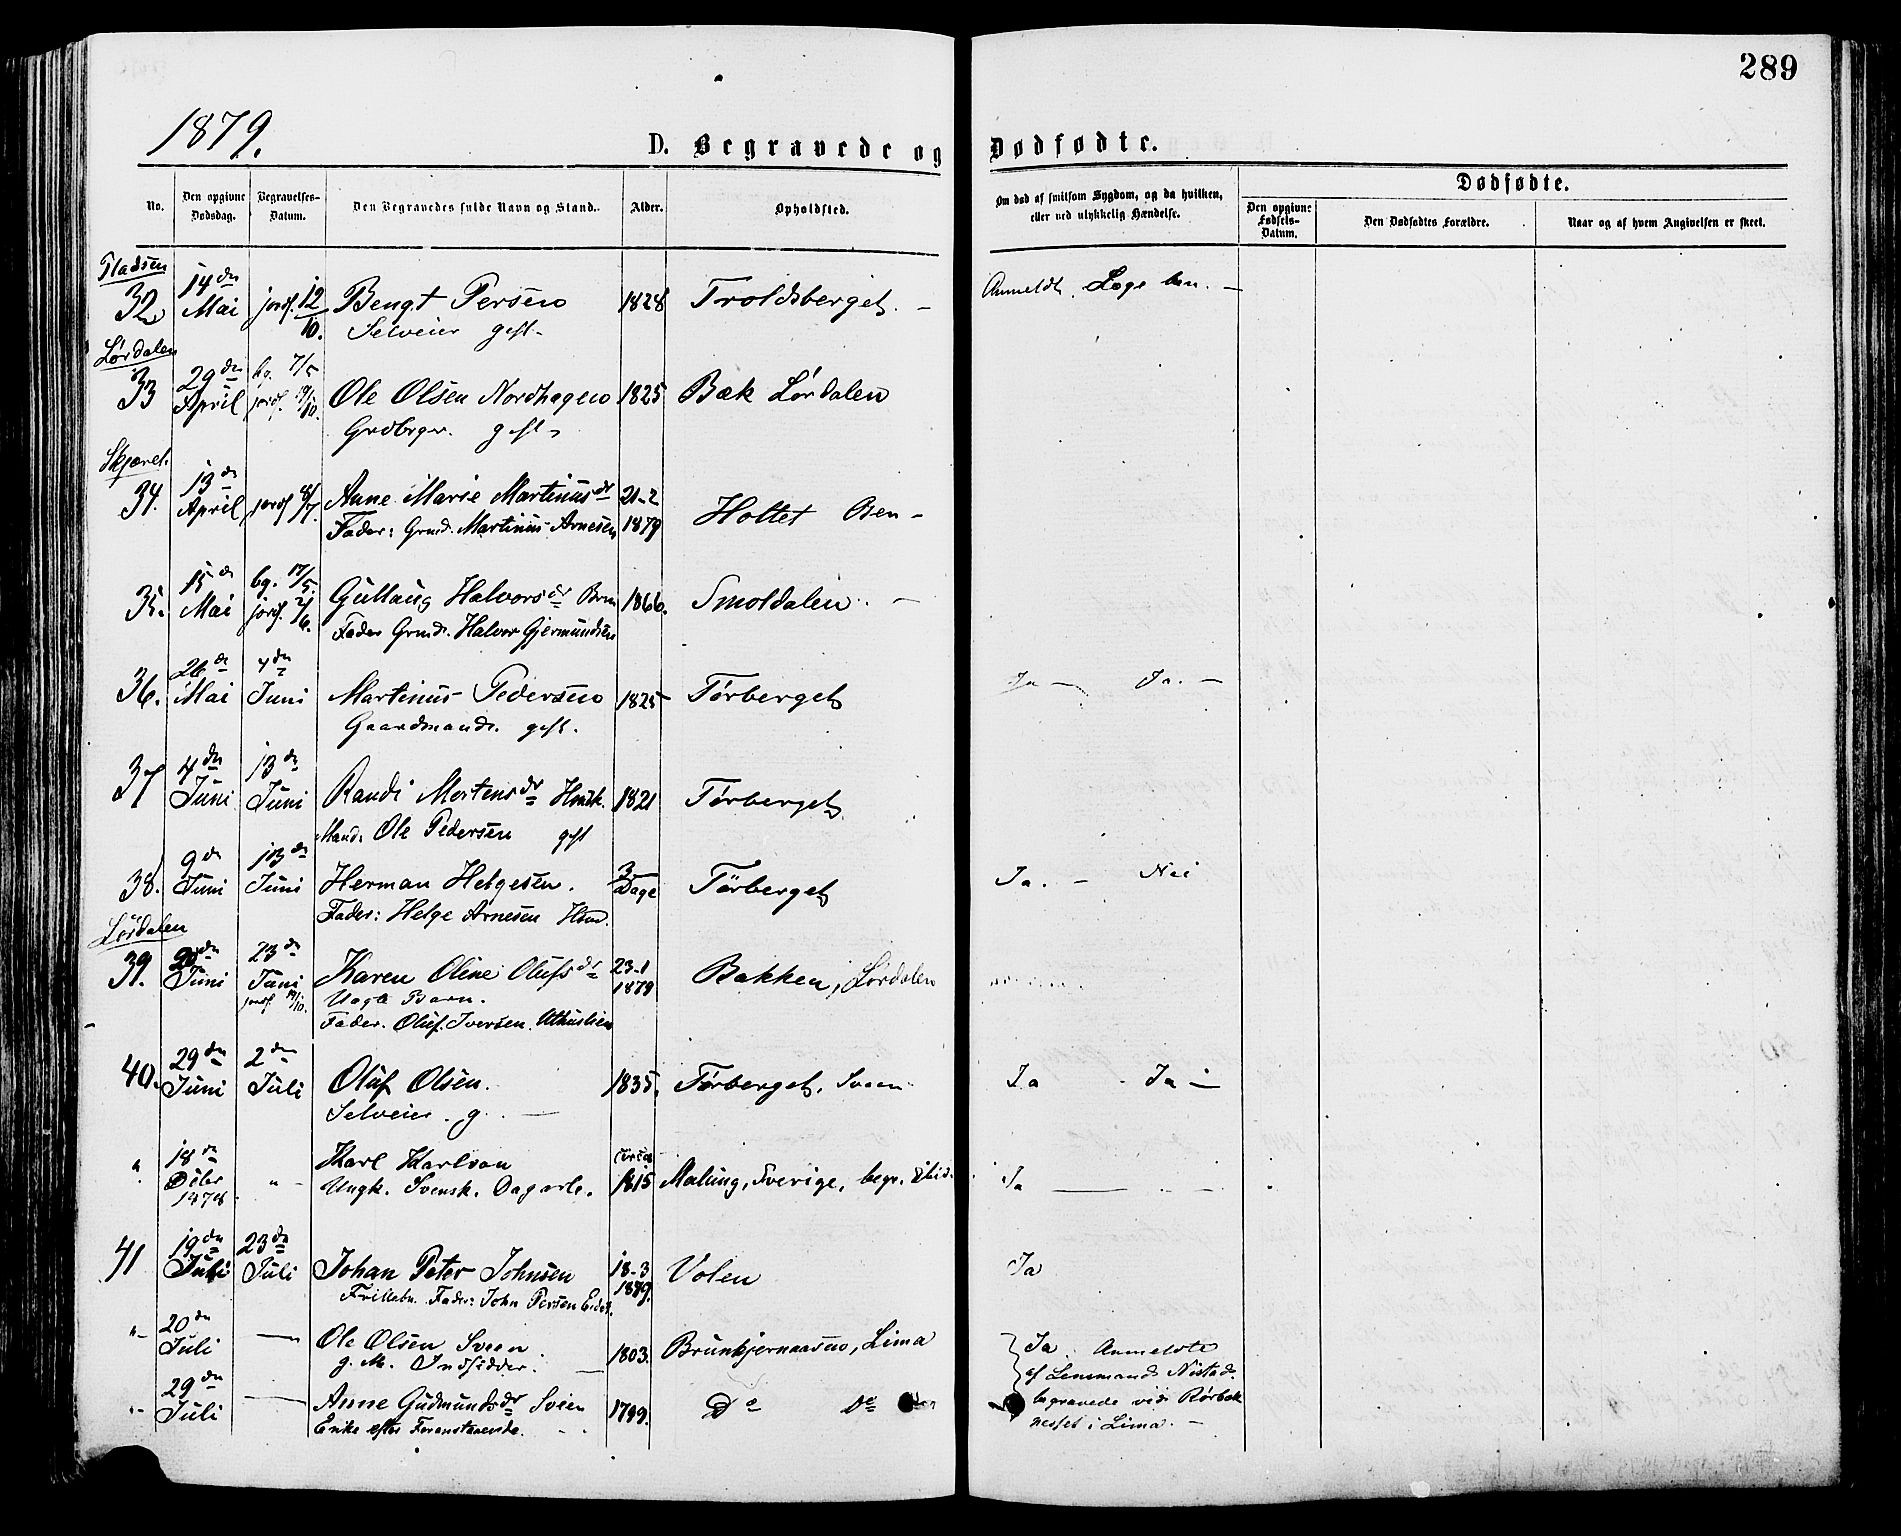 289
1879.
D. Begravede og Dødfødte.
No.
Den opgivne Dødsdag.
Begravelses-Datum.
Den Begravedes fulde Navn og Stand.
Alder.
Opholdsted.
Om død af smitsom Sygdom, og da hvilken, eller ved ulykkelig Hændelse.
Dødfødte.
Den opgivne Fødsels-Datum.
Den Dødfødtes Forældre.
Naar og af hvem Angivelsen er skeet.
Pladsen
32 14de Mai jordf. 12/10. Bengt Persen 1828 Troldsberget. - Anmeldt.
Selveier gift -
Lørdalen
33 29de April bg. 7/5 jordf. 19/10. Ole Olsen Nordhagen 1825 Bæk Lørdalen
Grdbrgr. gift -
Skjæret.
34. 13de April jordf 8/7. Anne Marie Martinusdr 21-2 1879 Holtet Osen -
Fader: Grmd. Martinus Arnesen
35. 15de Mai bg. 17/5. jordf. 2/6. Gullaug Halvorsdr 1866. Smoldalen. -
Fader Grmd. Halvor Gjermundsen
36. 26de Mai 4de Juni Martinus Pedersen 1825 Tørberget Ja - Ja. -
Gaardmand. gift.
37 4de Juni 13de Juni Randi Mortensdr Hmdk. 1821 Tørberget
Mand: Ole Pedersen gift
38. 9de Juni 13de Juni Herman Helgesen. 3 Dage Tørberget Ja. - Nei
Fader: Helge Arnesen Hsmd.
Lørdalen
39. Juni 23de Juni jordf. 19/10. Karen Oline Olufsdr 23-1 1879 Bakken, Lørdalen
Uægte Barn.
Fader. Oluf Iversen.
40. 29de Juni 2den Juli Oluf Olsen. 1835. Tørberget. Sveen Ja - Ja -
Selveier. g. -
" 18de Dcbr 1878 " - Karl Karlson circa 1815 Malung, Sverige, begr. Ja
Ungk. Svensk. Dagarb.
41 19de Juli 23de Juli Johan Peter Johnsen 18-3 1879. Volen Ja
Frillebn. Fader: John Persen
" 20de Juli — Ole Olsen Sveen 1803. Lima Ja. Anmeldte
g. M. Indsidder. af Lensmand Nistad.
" 29de Juli — Anne Gudmundsdr Sveen 1799. Do Do begravede ved Rørbæk
Enke efter Foranstaaende. nesset i Lima. -